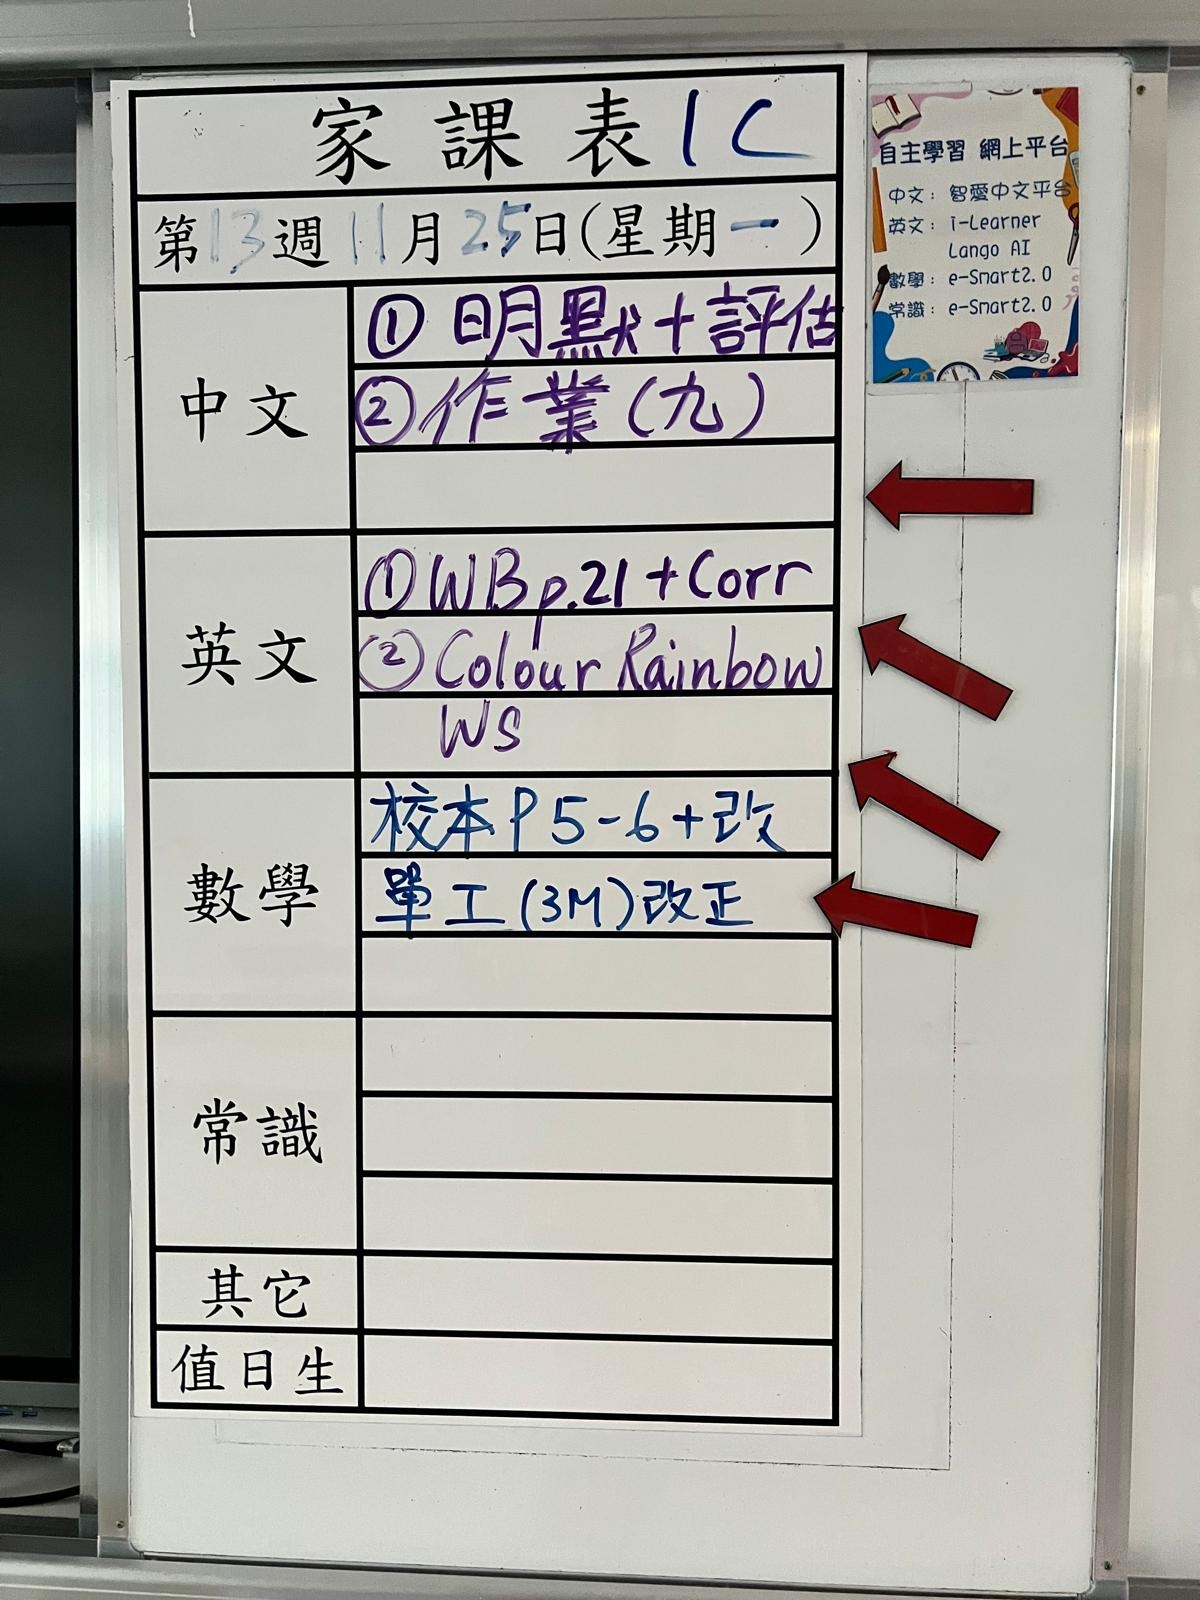 家課表 1C
第13週 11月25日(星期一)
中文
① 明默+評估
② 作業(九)
英文
① WB p.21 + Corr
② Colour Rainbow
WS
數學
校本P5-6+改
單工(3M)改正
常識
其它
值日生
自主學習 網上平台
中文: 智愛中文平台
英文: i-Learner
Lango AI
數學: e-Smart2.0
常識: e-Smart2.0